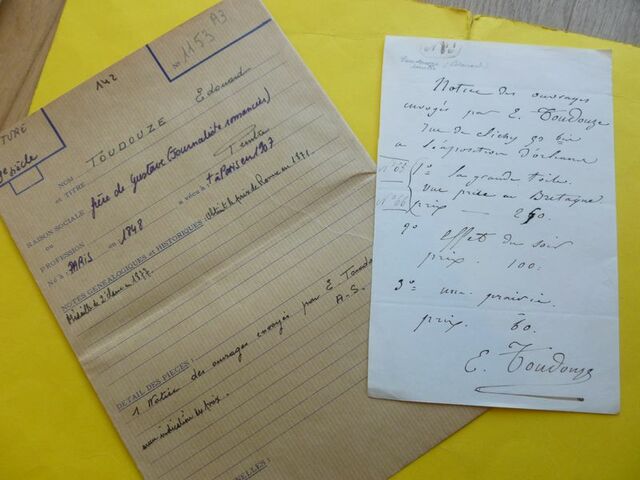 TURE
XIXe siècle
142
No 1153 A3
NOM
et TITRE
TOUDOUZE Edouard
RAISON SOCIALE
ou
PROFESSION
frère de Gustave (Journaliste romancier)
Peintre
Né à : PARIS en 1848 a vécu à + à Paris en 1907
NOTES GENEALOGIQUES et HISTORIQUES : Obtint le prix de Rome en 1871.
Médaille de 2e classe en 1877.
DETAIL DES PIECES :
1. Notice des ouvrages envoyés par E. Toudouze
A.S.
avec indication des prix.
NELLES :
Notice des ouvrages
envoyés par E. Toudouze
rue de Clichy 90 bis
a l'exposition d'orléans
1o la grande toile.
vue prise en Bretagne
prix — 250.
2o Effet du soir
prix. 100.
3o une prairie.
prix. 60.
E. Toudouze